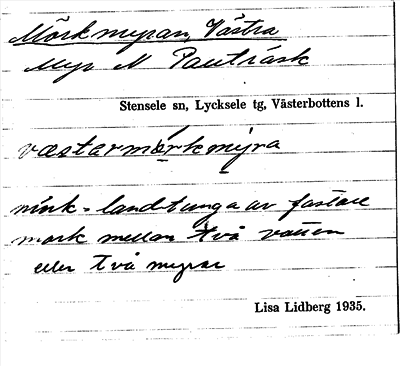 Mörkmyran, Västra
Myr N Pauträsk
Stensele sn, Lycksele tg, Västerbottens l.
væstarmörkmyra
mörk = landtunga av fastare
mark mellan två vatten
eller två myrar
Lisa Lidberg 1935.